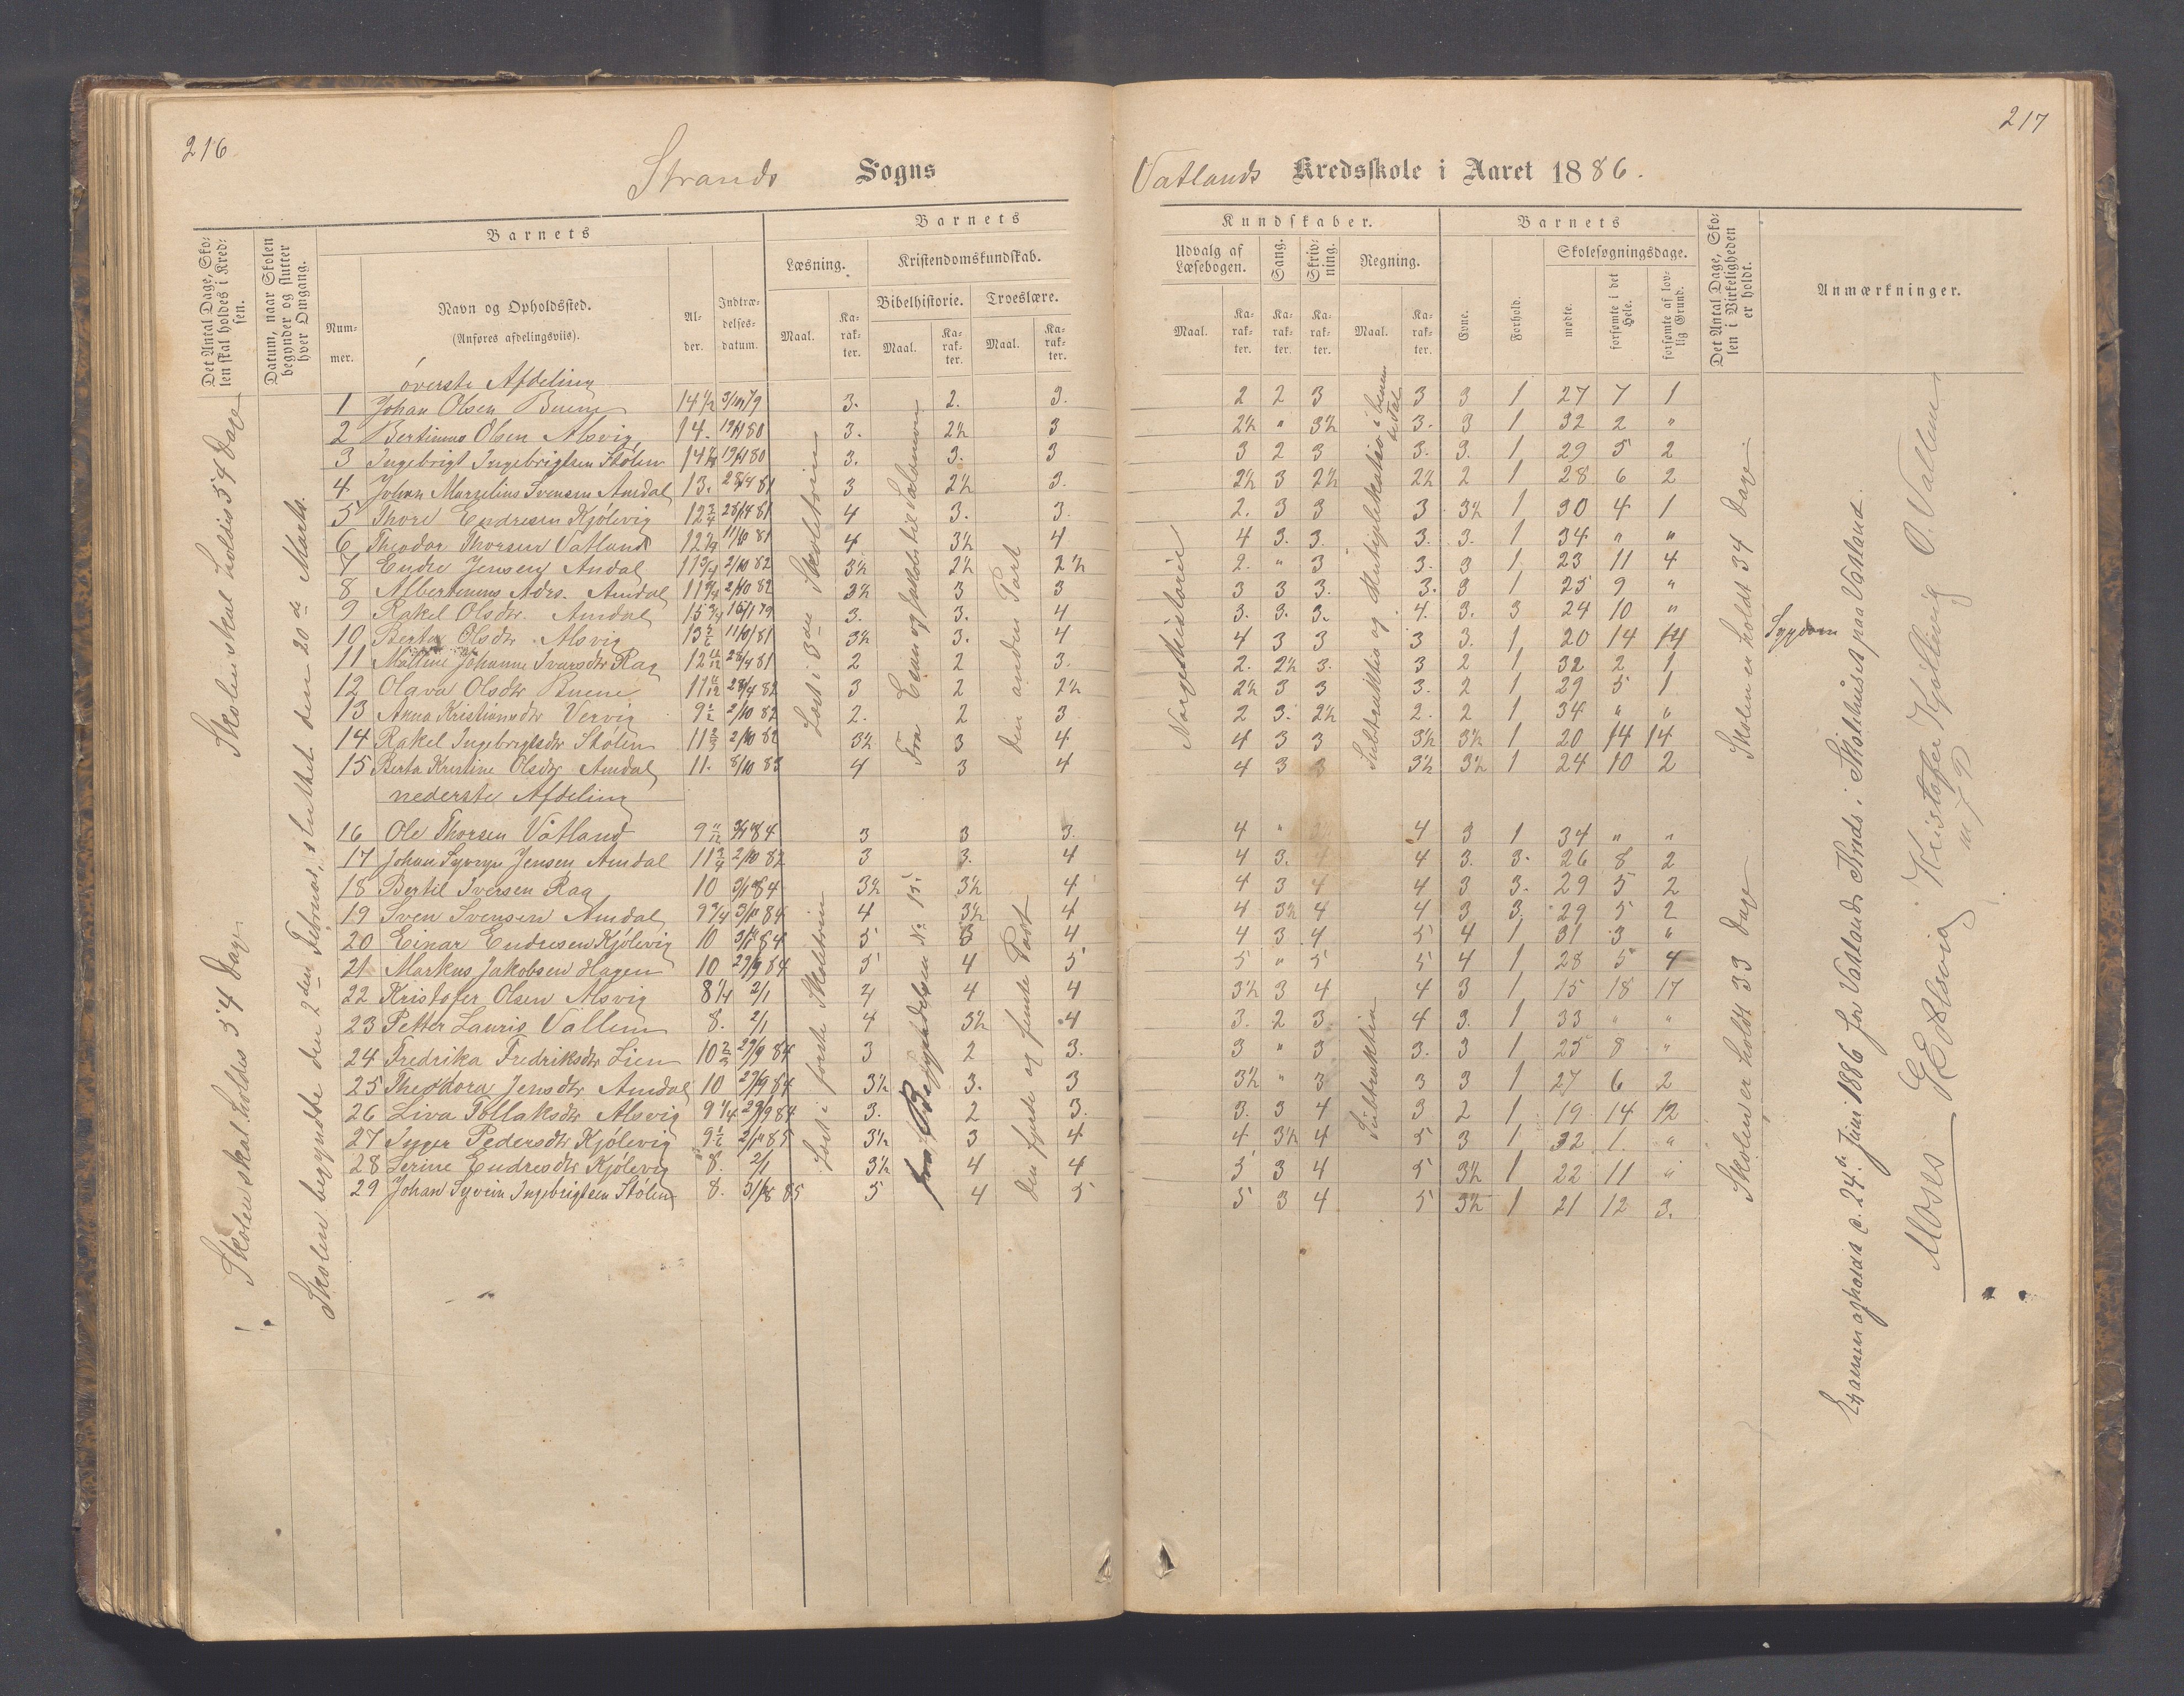 216
217
Strands Sogns
Vatlands Kredsskole i Aaret 1886.
Det Antal Dage, Skolen skal holdes i Kredsen.
Datum, naar Skolen begynder og slutter hver Omgang.
Barnets
Nummer.
Navn og Opholdssted.
(Anføres afdelingsviis).
Alder.
Indtrædelsesdatum.
Barnets
Læsning.
Kristendomskundskab.
Bibelhistorie. Troeslære.
Maal. Karakter. Maal. Karakter. Maal. Karakter.
Kundskaber.
Udvalg af Læsebogen.
Sang.
Skrivning.
Regning.
Maal. Karakter. Karakter. Karakter. Maal. Karakter.
Barnets
Evne.
Forhold.
Skolesøgningsdage.
mødte.
forsømte i det Hele.
forsømte af lovlig Grund.
Det Antal Dage, Skolen i Virkeligheden er holdt.
Anmærkninger.
øverste Afdeling
1 Johan Olsen Buene 14 1/2 3. 2. 3. 2 2 3 3 3 1 27 7 1
2 Bertinus Olsen Alsvig 14. 19/1 80 3. 2½ 3 2½ " 3½ 3. 3 1 32 2 "
3 Ingebrigt Ingebrigtsen Stølen 19/1 80 3. 3. 3 3 2 3 3. 3. 1 29 5 2
4 Johan Marselius Svensen Amdal 13. 28/4 81 3 2½ 3. 2½ 3 2½ 2½ 2 1 28 6 2
5 Thore Endresen Kjølevig 12 3/4 28/4 81 4 3. 3. 2. 3 3 3 3½ 1 30 4 1
6 Theodor Thorsen Vatland 4 3½ 4 4 3. 3. 3. 3. 1 34 " "
7 Endre Jensen Amdal 11 3/4 2/10 82 3½ 2½ 2½ 2. " 3 3. 3 1 23 11 4
8 Albertinus Adrs. Amdal 2/10 82 3½ 3 3 3 3 3. 3. 3 1 25 9 "
9 Rakel Olsdtr. Amdal 15 3/4 3. 3. 4 3. 3. 3. 4. 3. 3 24 10 "
10 Berta Olsdtr. Alsvig 13½ 3½ 3. 4 4 3 3 3 3. 1 20 14 14 Sygdom
11 Malline Johanne Ivarsdtr Rag 28/4 81 2 2 3. 2. 2½ 3. 3 2 1 32 2 1
12 Olava Olsdtr Buene 3 2 2½ 2½ 3 3 3. 2 1 29 5 1
13 Anna Kristiansdtr Vervig 9½ 2/10 82 2. 2 3 2 3. 2½ 2. 2 1 34 " "
14 Rakel Ingebrigtsdtr Stølen 11 2/3 2/10 82 3½ 3 4 4 3 3 3½ 3½ 1 20 14 14
15 Berta Kristine Olsdtr Amdal 11. 8/10 83 4 3 4 4 3 3 3½ 3½ 1 24 10 2
nederste Afdeling
16 Ole Thorsen Vatland 3 3 3. 4 " 4 3 1 34 " "
17 Johan Syvryn Jensen Amdal 11 3/4 2/10 82 3 3. 4 4 3. 4 4 3. 3. 26 8 2
18 Bertil Iversen Rag 10 3½ 3½ 4 4 3 4 4 3 3. 29 5 2
19 Sven Svensen Amdal 9 3/4 4 3½ 4 4 3½ 4 4 3 3. 29 5 2
20 Einar Endresen Kjølevig 10 5 3 4 4 3 4 5 4 1 31 3 "
21 Markus Jakobsen Hagen 10 29/9 84 5 4 5 5 " 5 5 4 1 28 5 4
22 Kristofer Olsen Alsvig 8 1/4 2/1 4 4 4 3½ 3 4 4 3 1 15 18 17
23 Petter Lauris Vallem 8. 2/1 4 3½ 4 3. 2 3 4 3. 1 33 " "
24 Fredrika Fredriksdtr Lien 10 2/3 29/9 84 3 2 3. 3 " 3 3. 3 1 25 8 "
25 Theodora Jensdtr Amdal 10 29/9 84 3½ 3. 3 3½ " 3 3 3 1 27 6 2
26 Liva Tollaksdtr Alsvig 9 1/4 29/9 84 3. 2 3. 3. 3 4 3 2 1 19 14 12
27 Inger Pedersdtr Kjølevig 9½ 3½ 3 4 4 3½ 4 5 3 1 32 1. "
28 Serine Endresdtr Kjølevig 8. 2/1 3½ 4 4 5 3 4 5 3½ 1 22 11 "
29 Johan Syvrin Ingebrigtsen Stølen 8. 5 4 5 5 3 4 5 3½ 1 21 12 3.
Skolen skal holdes 34 Dage
Skolen skal holdes 34 Dage
Skolen begyndte den 2den Februar, sluttet den 20de Marts.
Læst i 3die Skoletrin
Fra Edens og Jakob til Salomon
den anden Part
Læst i første Skoletrin
fra Begyndelsen No. 15.
den fjerde og femte Part
Norges Historie
Subtraktion og Multiplikation i benævnte Tal
Subtraktion
Skolen er holdt 34 Dage
Skolen er holdt 33 Dage
Examen afholdt d. 24de Juni 1886 for Vatlands Kreds i Skolehuset paa Vatland.
Moses K Alsvig Kristofer Kjøllevig O. Vallem
m f P